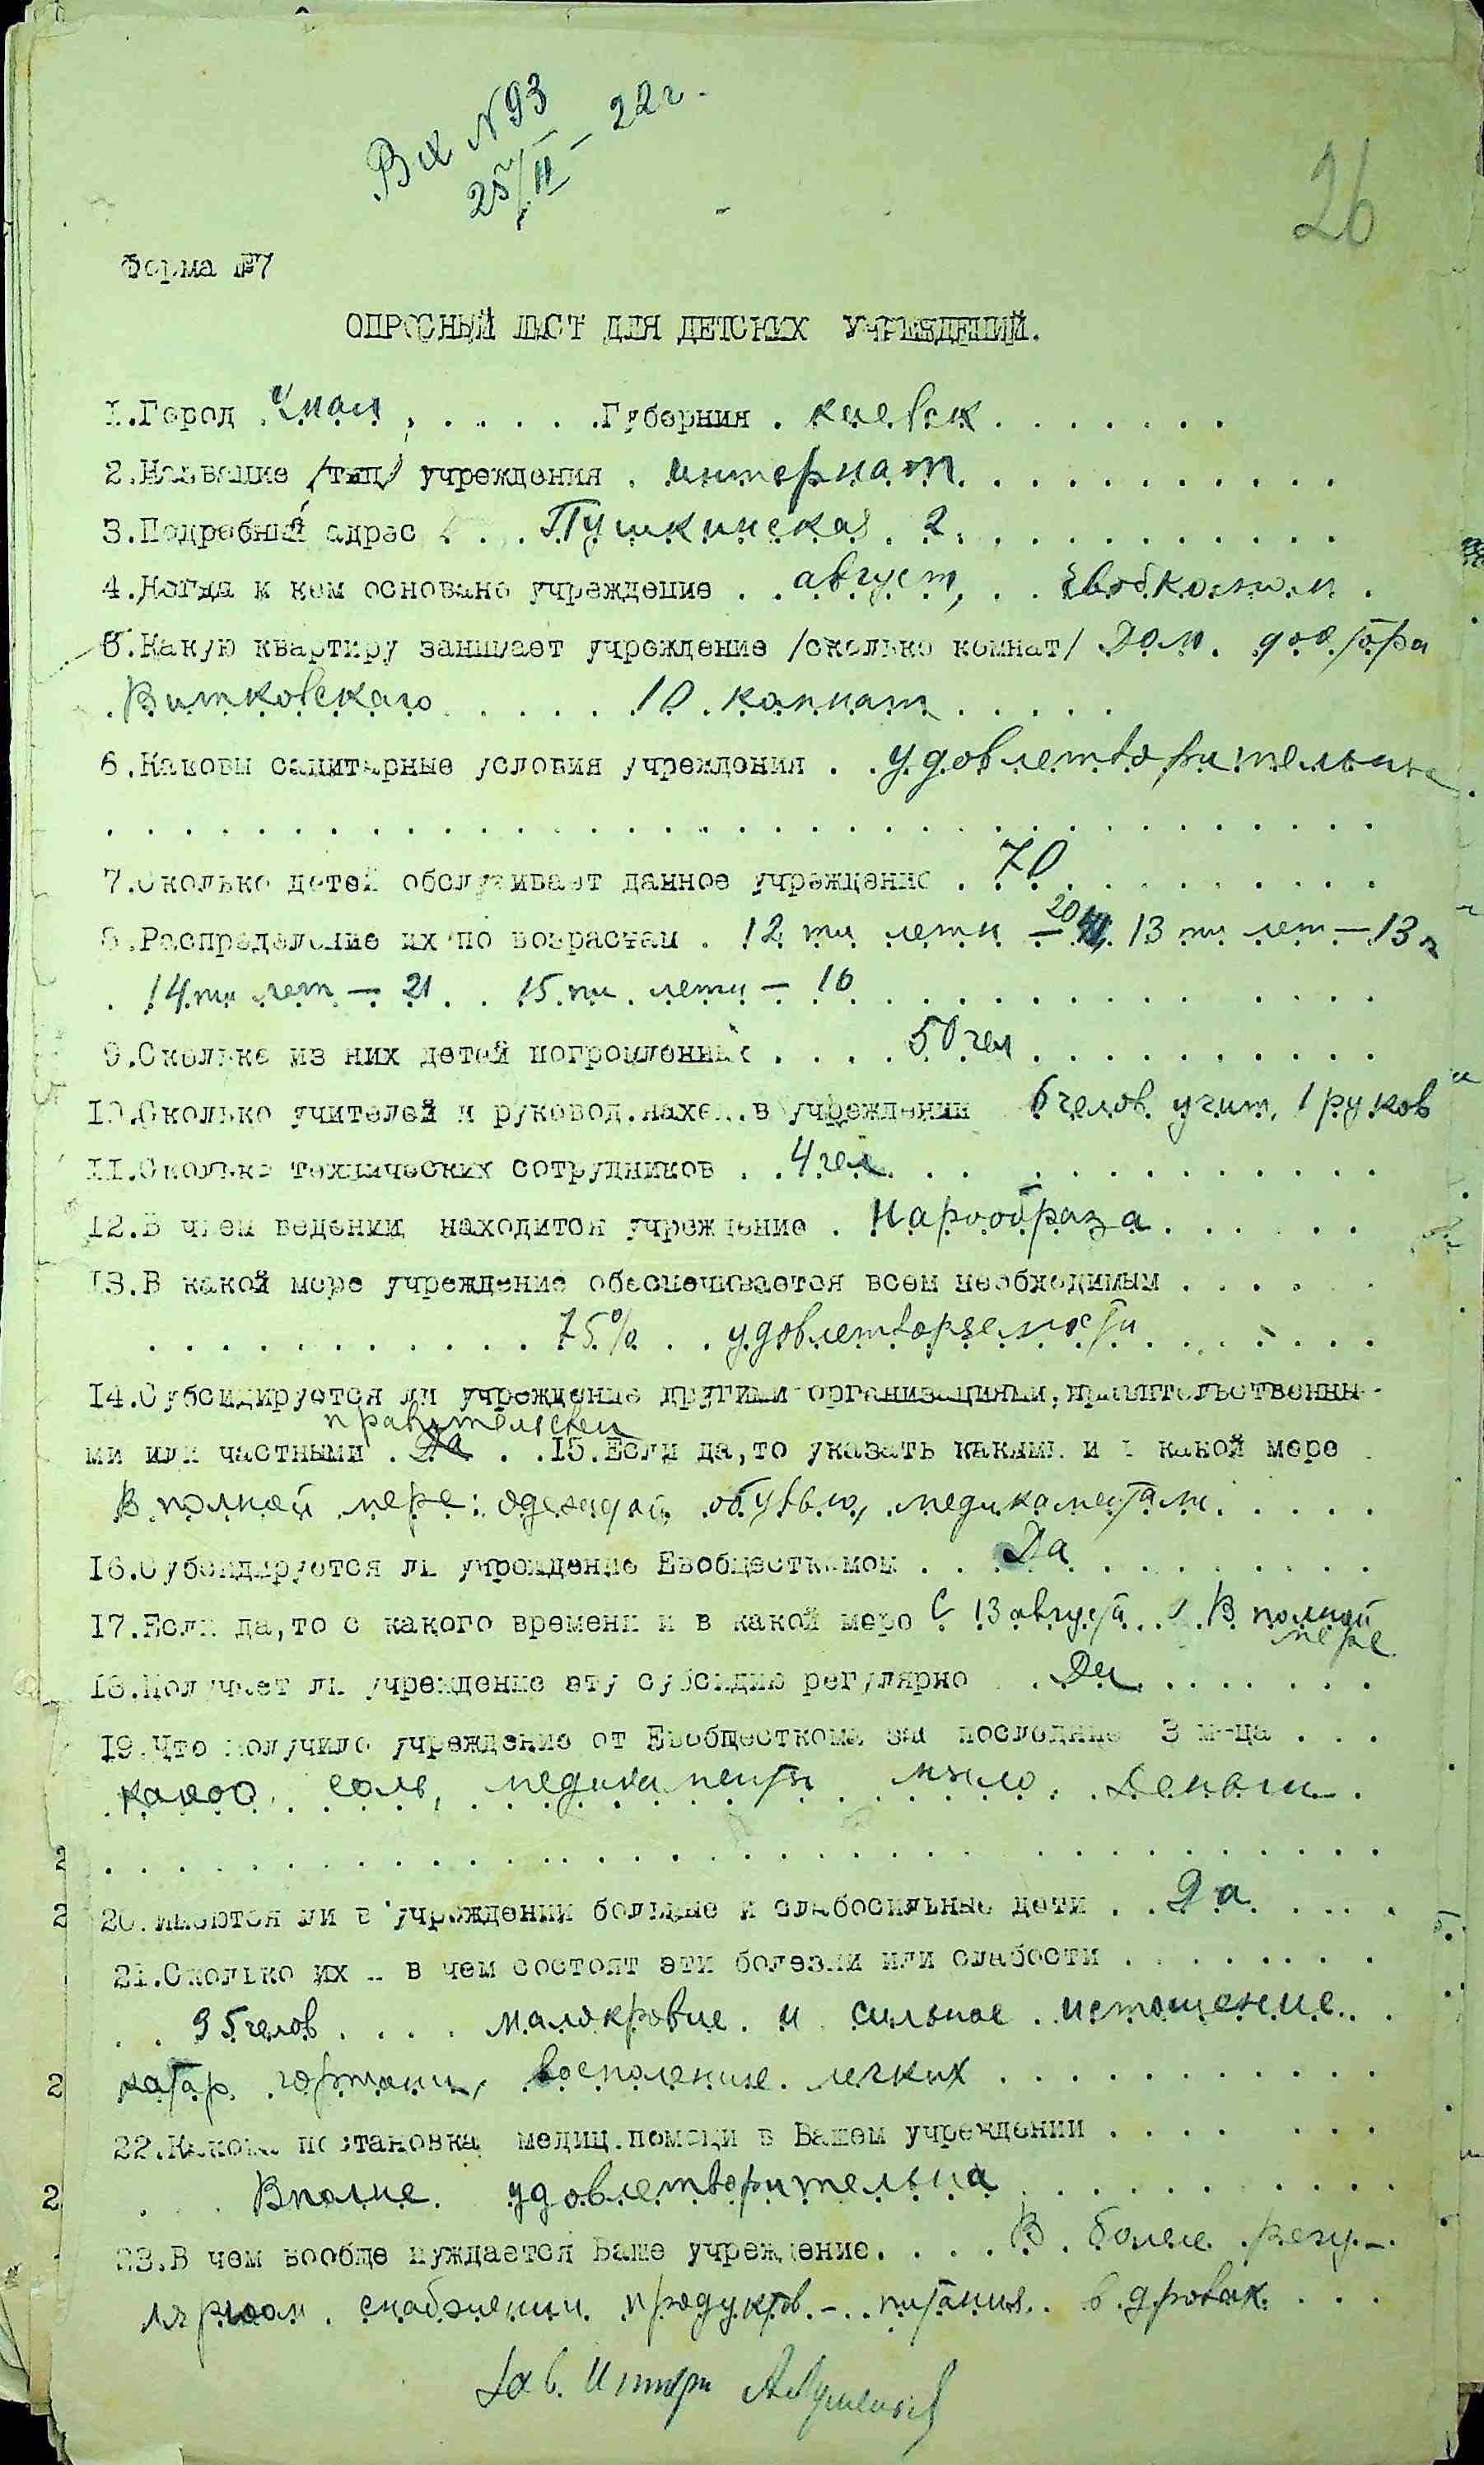 Вх №93
25/II – 22 г.
26
Форма №7
ОПРОСНЫЙ ЛИСТ ДЛЯ ДЕТСКИХ УЧРЕЖДЕНИЙ.
1.Город . Умань . . . . . .Губерния . киевск . . . . . . .
2.Название /тип/ учреждения . интернат. . . . . . . . . . .
3.Подробный адрес . . . Пушкинская. 2. . . . . . . . . . .
4.Когда и кем основано учреждение . . август, . . Евобком .
5.Какую квартиру занимает учреждение /сколько комнат/ Дом. доктора
.Витковскаго . . . . . 10 . комнат . . . . .
6.Каковы санитарные условия учреждения . . удовлетворительные
7.Сколько детей обслуживает данное учреждение . 70 . . . . . . . . .
8.Распределение их по возрастам . 12 ти лети – 20 13 ти лет – 13
. 14 ти лет – 21 . . 15 ти. лети – 16 . . . . . . . . . . . . .
9.Сколько из них детей погромленных . . . . 50 чел . . . . . . . . . .
10.Сколько учителей и руковод.наход.в учреждении 6 челов. учит. 1 руков
11.Сколько технических сотрудников . . 4 чел . . . . . . . . . . . .
12.В чьем ведении находится учреждение . Нарообраза . . . . . .
13.В какой мере учреждение обеспечивается всем необходимым . . . . . .
. . . . . . . . . . . 75% . . удовлетворяемости . . . . . . .
14.Субсидируется ли учреждение другими организациями,правительственны-
правительствен
ми или частными . Да . . .15.Если да,то указать какими и в какой мере .
В полной мере: одеждой, обувью, медикаментами . . . . .
16.Субсидируется ли учреждение Евобщесткомом . . . Да . . . . . . . .
17.Если да,то с какого времени и в какой мере С 13 августа . . В полной
мере
18.Получает ли учреждение эту субсидию регулярно . . Да . . . . . . .
19.Что получило учреждение от Евобщесткома за последние 3 м-ца . . .
какао, соль, медикаменты мыло. Деньги .
20.Имеются ли в учреждении больные и слабосильные дети . . Да . . . . .
21.Сколько их и в чем состоят эти болезни или слабости . . . . . . . .
. . 35 челов . . . . малокровие. и. сильное . истощение. . .
катар. гортани, восполение. легких . . . . . . . . . . .
22.Какова постановка медиц.помощи в Вашем учреждении . . . . . . .
. . . Вполне. удовлетворительна . . . . . . . . . . .
23.В чем вообще нуждается Ваше учреждение. . . . . В . более . регу-
лярном . снабжении. продуктов. – . питания. . в . дровах. . . .
Зав. Интерн